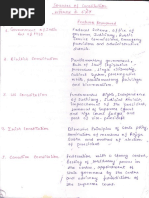 Sources of Constitution
Features Borrowed
1. Government of India Act of 1935
Federal Scheme, office of
governor, Judiciary, Public
Service Commission, Emergency
provisions and administrative
details
2. British Constitution
Parliamentary government,
Rule of law, legislative
procedure, single citizenship,
cabinet system, prerogative
writs, parliamentary
privileges and bicameralism.
3. US Constitution
Fundamental rights, independence
of judiciary, judicial review,
impeachment of the president,
removal of supreme
court and high court judges
and vice president.
4. Irish Constitution
Directive Principles of State Policy,
nomination of members to
Rajya Sabha and method of
election of president
5. Canadian Constitution
Federation with a strong Centre,
vesting of residuary powers
in the centre, appointment
of state governors
by the centre, and advisory
jurisdiction of the
supreme court.